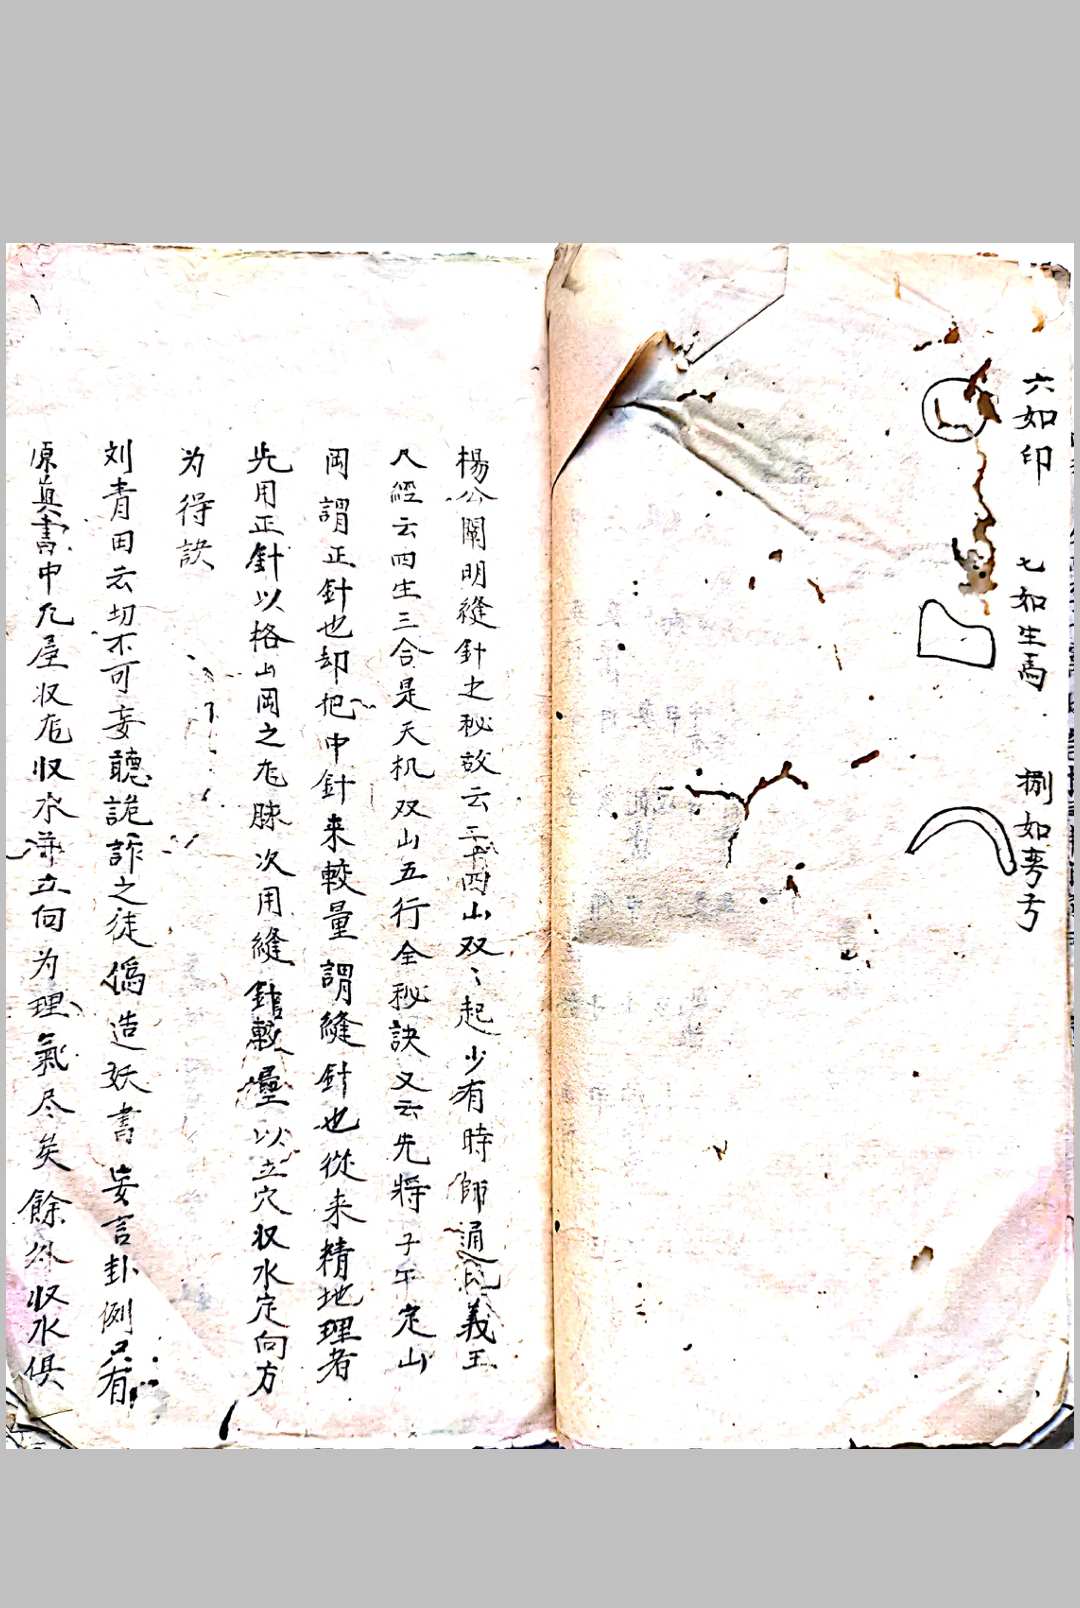 六如印
七如生馬
捌如弯弓
楊公闡明縫針之秘故云二十四山双々起少有時師通此義王
尺經云四生三合是天机双山五行全秘訣又云先将子午定山
岡謂正針也却把中針来較量謂縫針也從来精地理者
先用正針以格山岡之龙脉次用縫針較量以立穴収水定向方
为得訣
刘青田云切不可妄聽詭詐之徒僞造妖書妄言卦例只有
原真書中凡屋収龙収水立向为理氣尽矣餘外収水俱